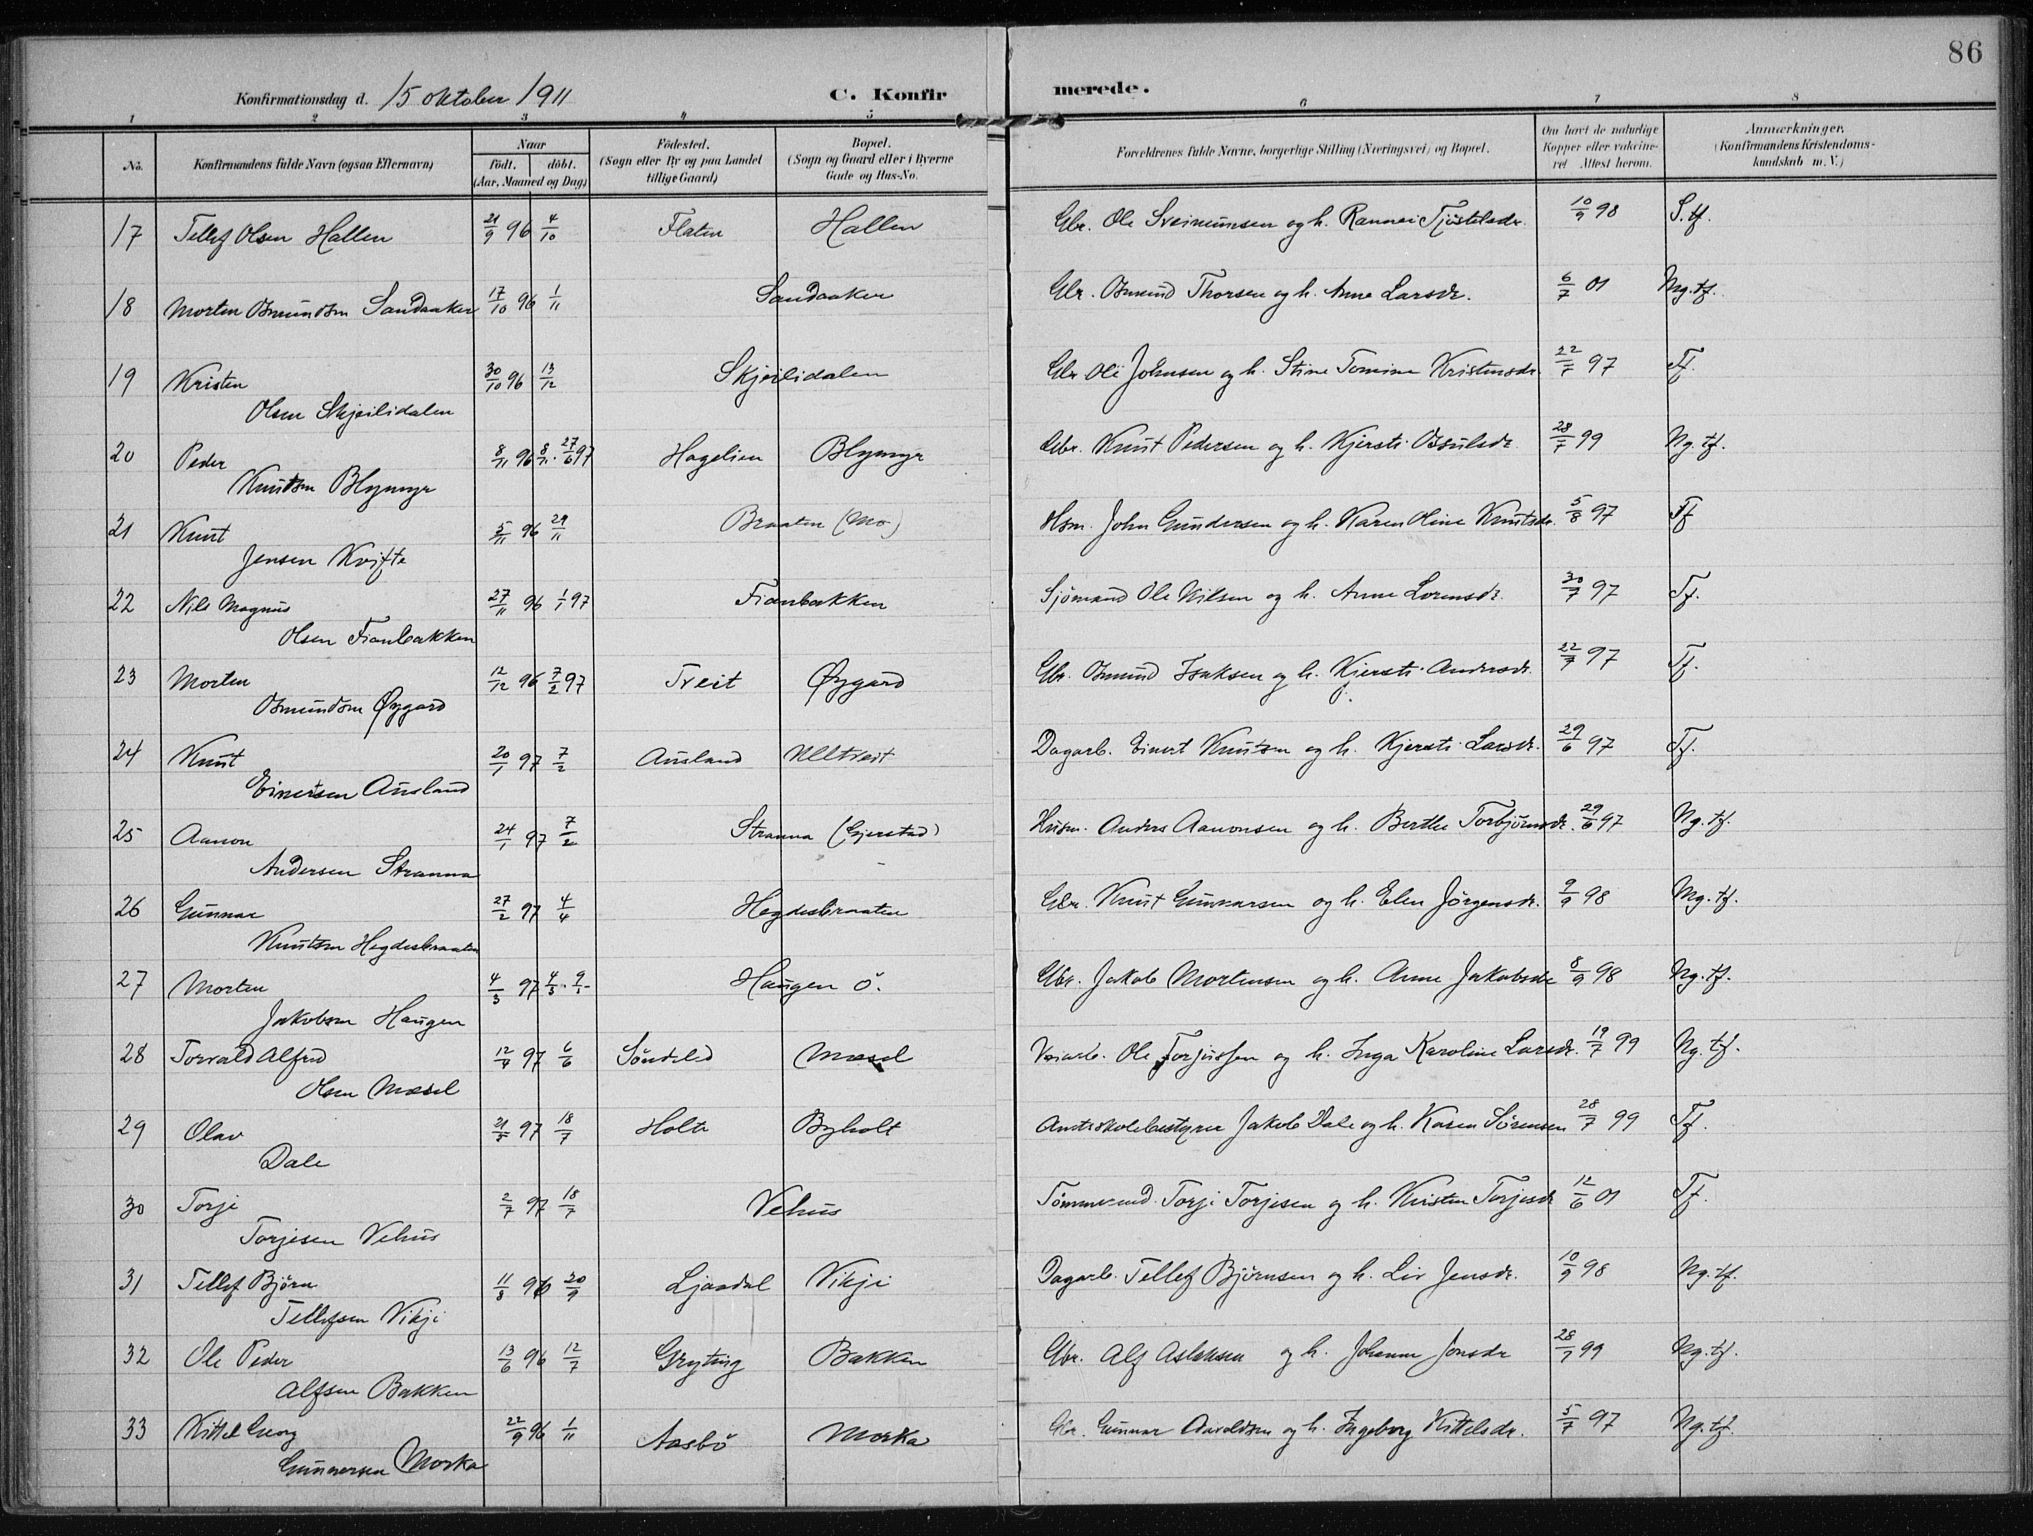 86
Konfirmationsdag d. 15 oktober 1911 C. Konfirmerede.
1 2 3 4 5 6 7 8
No. Konfirmandens fulde Navn (ogsaa Efternavn) Naar født. døbt. (Aar, Maaned og Dag) Fødested. (Sogn eller By og paa Landet tillige Gaard) Bopæl. (Sogn og Gaard eller i Byerne Gade og Hus-No. Forældrenes fulde Navne, borgerlige Stilling (Næringsvei) og Bopæl. Om havt de naturlige Kopper eller vaccineret Attest herom. Anmærkninger. (Konfirmandens Kristendomskundskab m. V.)
17 Tellef Olsen Hallen 21/9 96 4/10 Flaten Hallen Gbr. Ole Sveinumsen og h. Rannei Tjøstelsdr. 10/9 98 S.tf.
18 Morten Osmundsen Sandaaker 17/10 96 1/11 Sandaaker Gbr. Osmund Thorsen og h. Anne Larsdr. 6/7 01 Mg.tf.
19 Kristen 30/10 96 13/12 Skjeilidalen Gbr Ole Johnsen og h. Stine Tomine Kristensdr. 22/7 97 Tf.
Olsen Skjeilidalen
20 Peder 8/11 96 8/11. 27/6 97 Hagelien Blymyr Gbr. Knut Pedersen og h. Kjersti Osuldsdr 28/7 99 Ng.tf.
Knutsen Blymyr
21 Knut 5/11 96 29/11 Braaten (Mo) Hsm. John Gundersen og h. Karen Oline Knutsdr. 5/8 97 Tf
Jensen Kvifte
22 Nils Magnus 27/11 96 1/1 97 Fianbakken Sjømand Ole Nilsen og h. Anne Lorensdr. 30/7 97 Tf.
Olsen Fianbakken
23 Morten 12/12 96 7/2 97 Tveit Øygard Gbr. Osmund Isaksen og h. Kjersti Andersdr. 22/7 97 Tf.
Osmundsen Øygard
24 Knut 20/1 97 7/2 Ausland Ulltveit Dagarb. Einert Knutsen og h. Kjersti Larsdr. 29/6 97 Tf.
Einertsen Ausland
25 Aanon 24/1 97 7/2 Stranna (Gjerstad) Husm. Anders Aanonsen og h. Berthe Torbjørnsdr. 29/6 97 Ng.tf.
Andersen Stranna
26 Gunnar 27/2 97 4/4 Hegdesbraaten Gbr. Knut Gunnarsen og h. Elen Jørgensdr. 9/9 98 Mg.tf.
Knutsen Hegdesbraaten
27 Morten 4/3 97 Haugen ø. Gbr. Jakob Mortensen og h. Anne Jakobsdr 8/9 98 Ng.tf.
Jakobsen Haugen
28 Torvald Alfred 12/4 97 6/6 Søndeled Mæsel Ole Torjussen og h. Inga Karoline Larsdr. 19/7 99 Ng.tf.
Olsen Mæsel
29 Olav 21/5 97 18/7 Holte Byholt Amtskolebestyrer Jakob Dale og h. Karen Sørensen 28/7 99 Tf.
Dale
30 Torje 2/7 97 18/7 Vehus Tømmermd. Torje Torjesen og h. Kirsten Torjesdr 12/6 01 Tf.
Torjesen Vehus
31 Tellef Bjørn 11/8 96 20/9 Ljaadal Vikje Dagarb. Tellef Bjørnsen og h. Liv Jensdr. 10/9 98 Ng.tf.
Tellefsen Vikje
32 Ole Peder 13/6 96 12/7 Gryting Bakken Gbr. Alf Aslaksen og h. Johanne Jonsdr 28/7 99 Ng.tf.
Alfsen Bakken
33 Kittel Georg 22/9 96 1/11 Aasbø Morka Gbr. Gunnar Aavoldsen og h. Ingeborg Kittelsdr. 5/7 97 Ng.tf.
Gunnarsen Morka